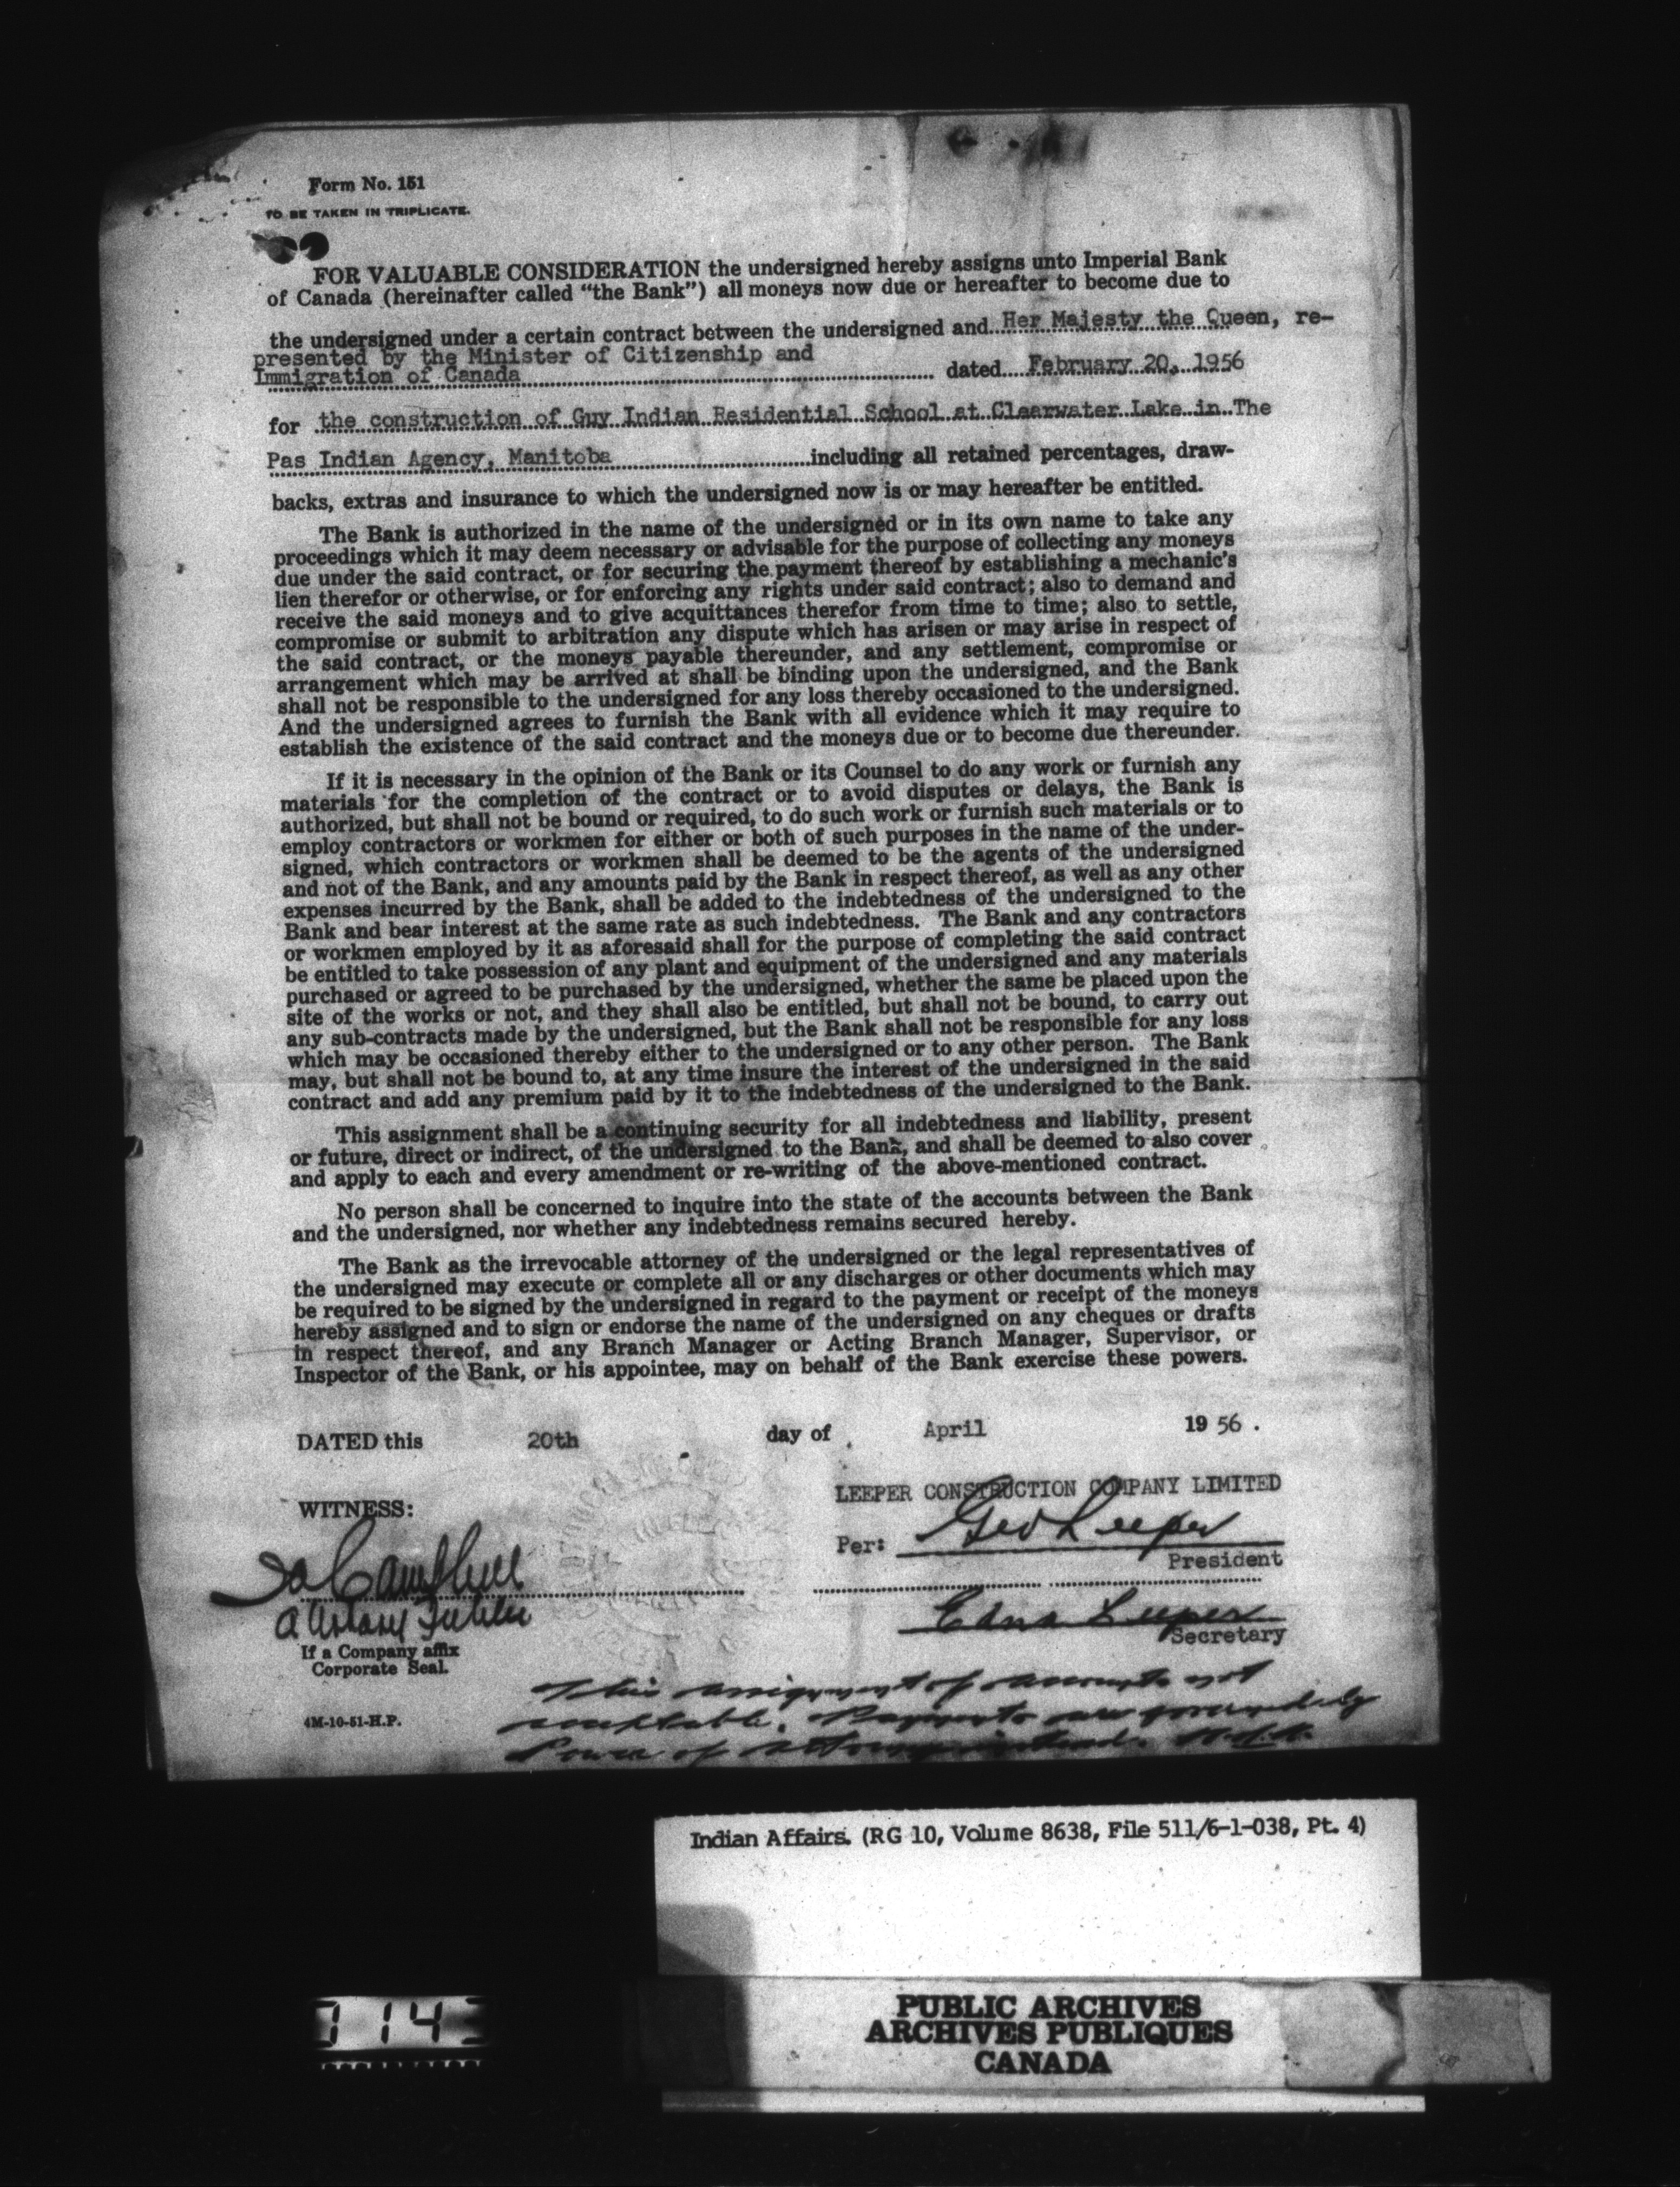 Form No. 151
TO BE TAKEN IN TRIPLICATE.
FOR VALUABLE CONSIDERATION the undersigned hereby assigns unto Imperial Bank
of Canada (hereinafter called “the Bank”) all moneys now due or hereafter to become due to
the undersigned under a certain contract between the undersigned and Her Majesty the Queen, re-
presented by the Minister of Citizenship and
Immigration of Canada dated February 20, 1956
for the construction of Guy Indian Residential School at Clearwater Lake in The
Pas Indian Agency, Manitoba including all retained percentages, draw-
backs, extras and insurance to which the undersigned now is or may hereafter be entitled.
The Bank is authorized in the name of the undersigned or in its own name to take any
proceedings which it may deem necessary or advisable for the purpose of collecting any moneys
due under the said contract, or for securing the payment thereof by establishing a mechanic's
lien therefor or otherwise, or for enforcing any rights under said contract; also to demand and
receive the said moneys and to give acquittances therefor from time to time; also to settle,
compromise or submit to arbitration any dispute which has arisen or may arise in respect of
the said contract, or the moneys payable thereunder, and any settlement, compromise or
arrangement which may be arrived at shall be binding upon the undersigned, and the Bank
shall not be responsible to the undersigned for any loss thereby occasioned to the undersigned.
And the undersigned agrees to furnish the Bank with all evidence which it may require to
establish the existence of the said contract and the moneys due or to become due thereunder.
If it is necessary in the opinion of the Bank or its Counsel to do any work or furnish any
materials for the completion of the contract or to avoid disputes or delays, the Bank is
authorized, but shall not be bound or required, to do such work or furnish such materials or to
employ contractors or workmen for either or both of such purposes in the name of the under-
signed, which contractors or workmen shall be deemed to be the agents of the undersigned
and not of the Bank, and any amounts paid by the Bank in respect thereof, as well as any other
expenses incurred by the Bank, shall be added to the indebtedness of the undersigned to the
Bank and bear interest at the same rate as such indebtedness. The Bank and any contractors
or workmen employed by it as aforesaid shall for the purpose of completing the said contract
be entitled to take possession of any plant and equipment of the undersigned and any materials
purchased or agreed to be purchased by the undersigned, whether the same be placed upon the
site of the works or not, and they shall also be entitled, but shall not be bound, to carry out
any sub-contracts made by the undersigned, but the Bank shall not be responsible for any loss
which may be occasioned thereby either to the undersigned or to any other person. The Bank
may, but shall not be bound to, at any time insure the interest of the undersigned in the said
contract and add any premium paid by it to the indebtedness of the undersigned to the Bank.
This assignment shall be a continuing security for all indebtedness and liability, present
or future, direct or indirect, of the undersigned to the Bank, and shall be deemed to also cover
and apply to each and every amendment or re-writing of the above-mentioned contract.
No person shall be concerned to inquire into the state of the accounts between the Bank
and the undersigned, nor whether any indebtedness remains secured hereby.
The Bank as the irrevocable attorney of the undersigned or the legal representatives of
the undersigned may execute or complete all or any discharges or other documents which may
be required to be signed by the undersigned in regard to the payment or receipt of the moneys
hereby assigned and to sign or endorse the name of the undersigned on any cheques or drafts
in respect thereof, and any Branch Manager or Acting Branch Manager, Supervisor, or
Inspector of the Bank, or his appointee, may on behalf of the Bank exercise these powers.
DATED this 20th day of April 19 56 .
LEEPER CONSTRUCTION COMPANY LIMITED
WITNESS:
Per: Geo Leeper
President
Campbell
A Notary Public
Edna Leeper
Secretary
If a Company affix
Corporate Seal.
This assignment of accounts not
acceptable. Payments are governed by
Power of Attorney
4M-10-51-H.P.
Indian Affairs. (RG 10, Volume 8638, File 511/6-1-038, Pt. 4)
PUBLIC ARCHIVES
ARCHIVES PUBLIQUES
CANADA